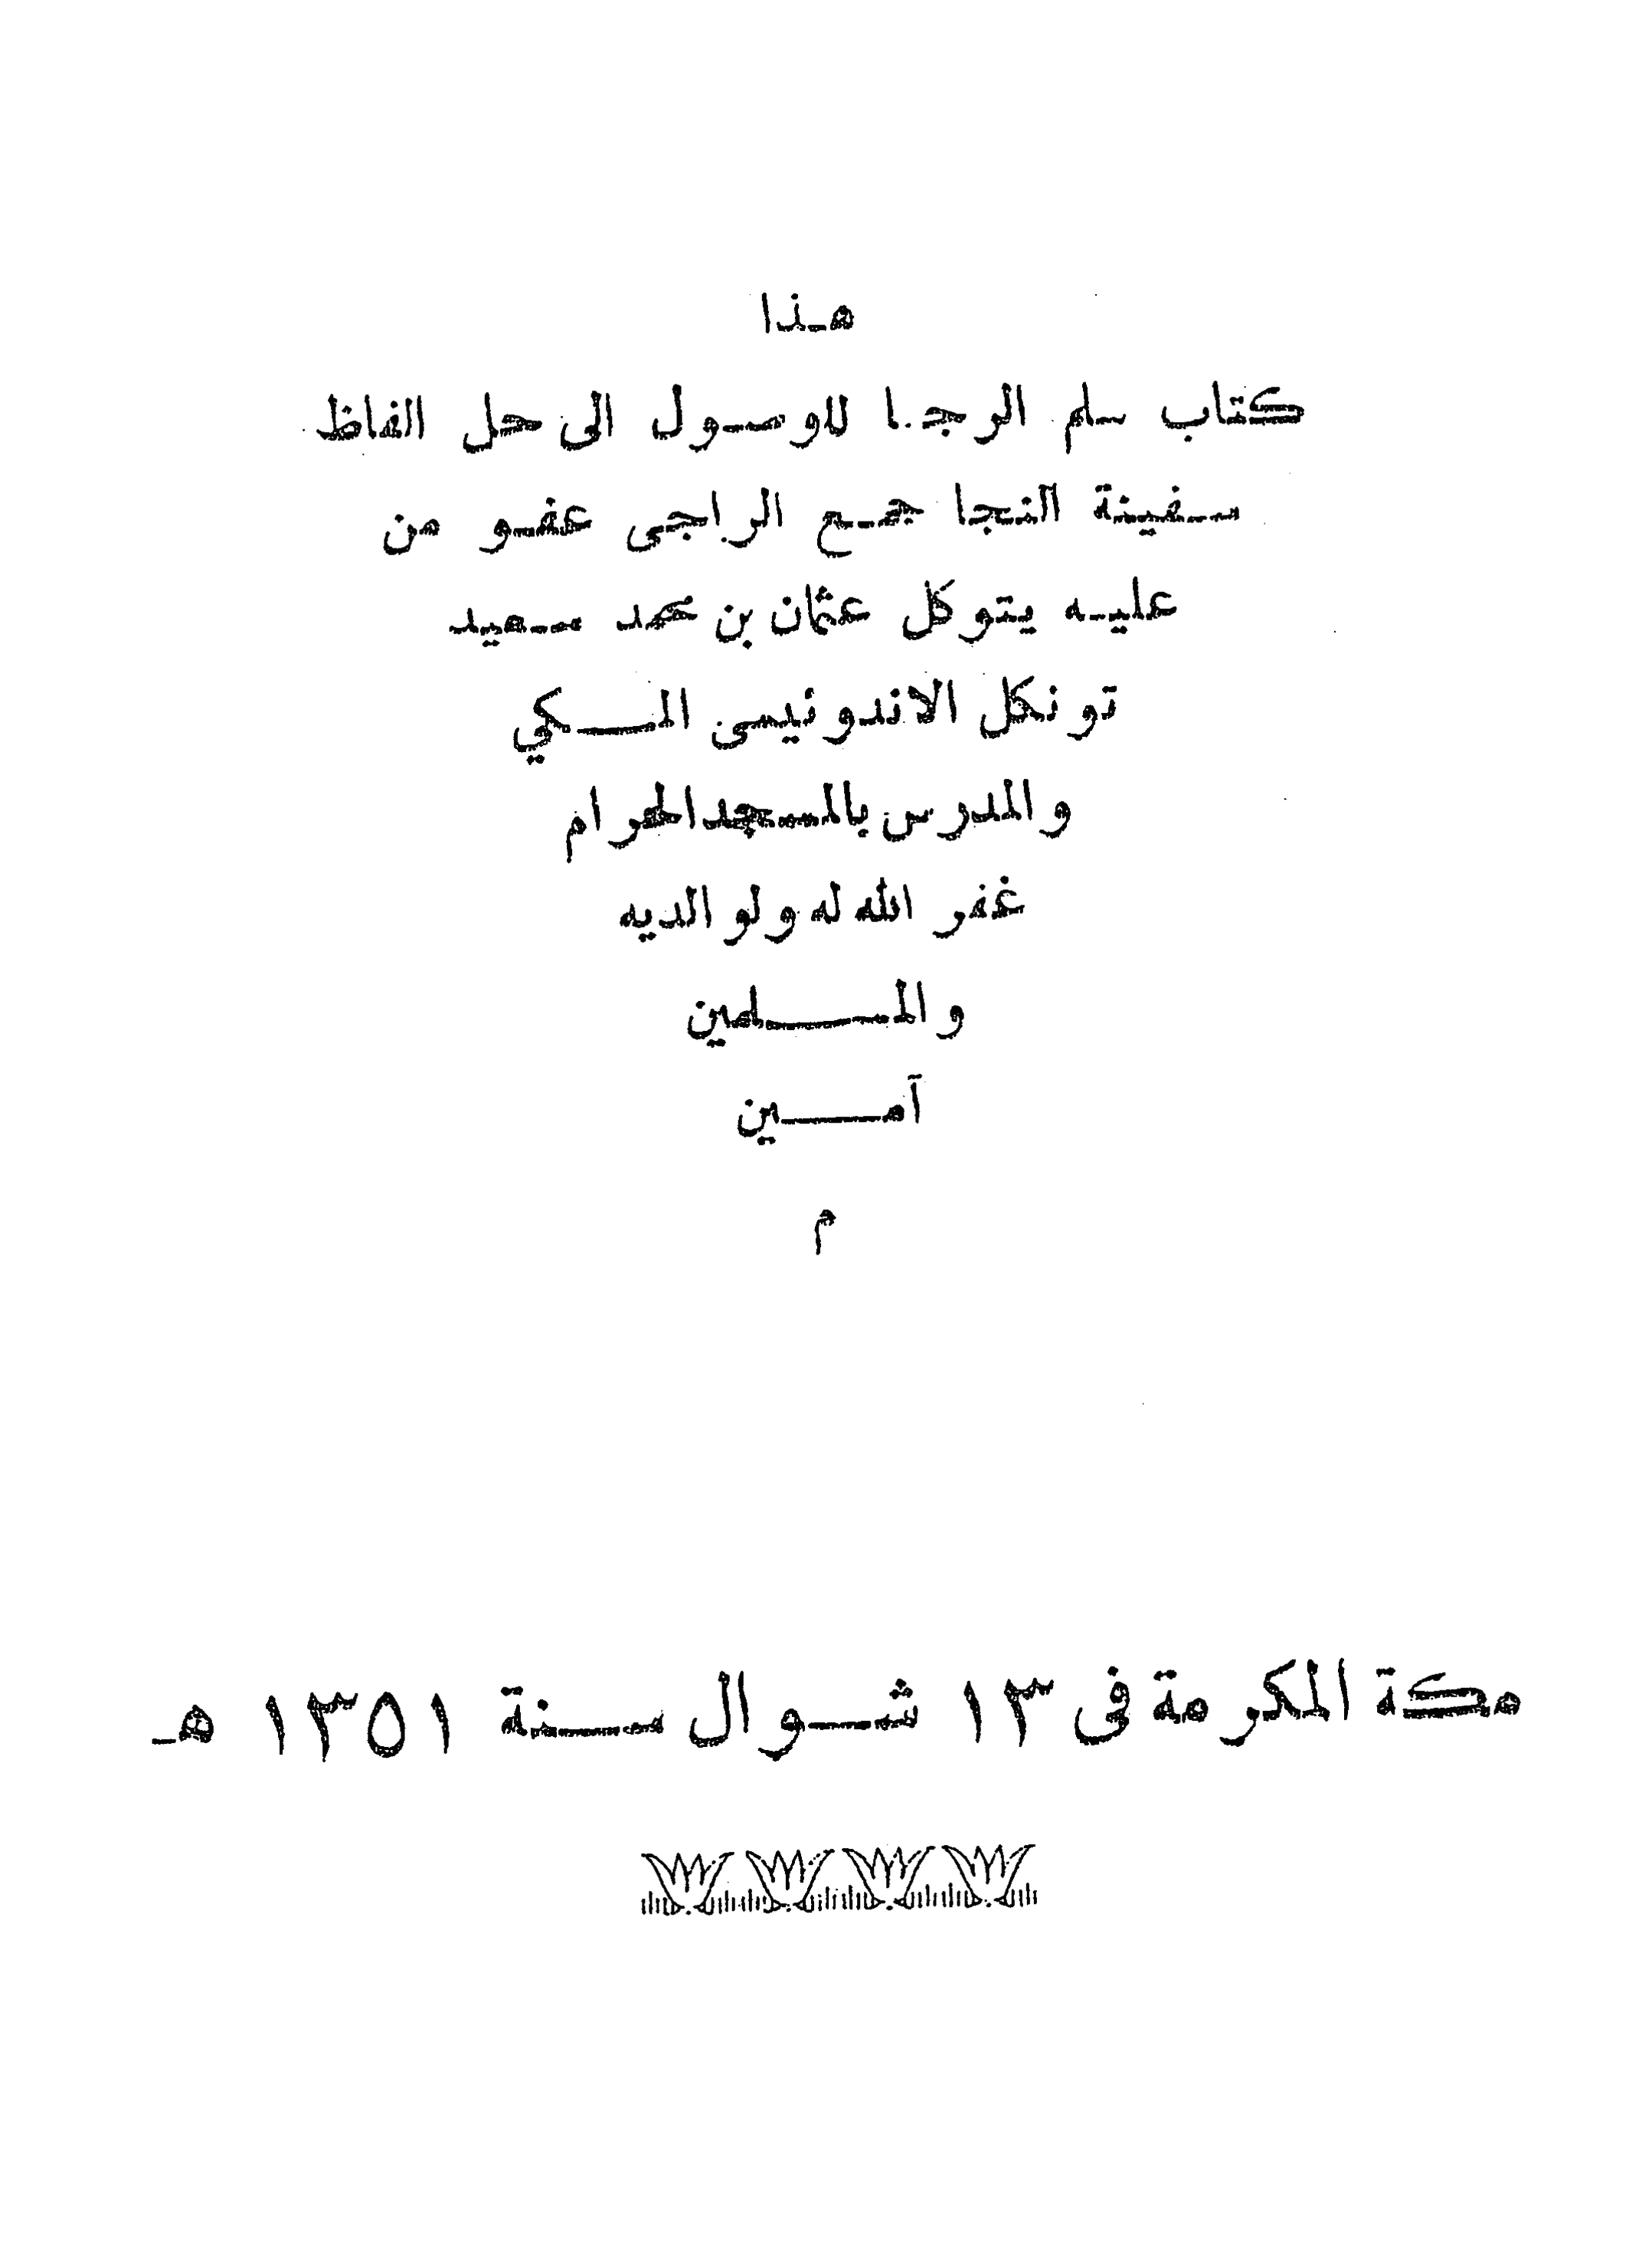 هذا
كتاب سلم الرجا للوصول الى حل الفاظ
سفينة النجا جمع الراجى عفو من
عليه يتوكل عثمان بن محمد سعيد
تونكل الاندونيسى المكي
والمدرس بالمسجد الحرام
غفر الله له ولوالديه
والمسلمين
آمين
م
مكة المكرمة فى ١٣ شوال سنة ١٣٥١ هـ